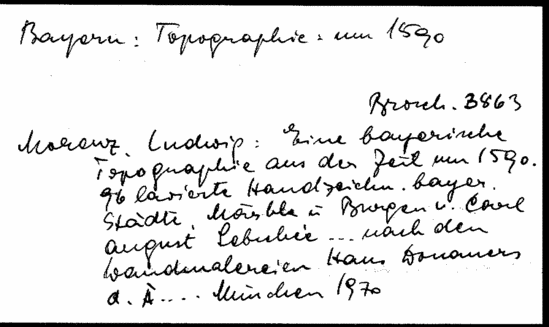 Bayern: Topographie: um 1590
Brosch. 3863
Morenz, Ludwig: Eine bayerische
Topographie aus der Zeit um 1590.
96 lavierte Handzeichn. bayer.
Städte, Märkte u Burgen v. Carl
August Lebschée ... nach den
Wandmalereien Hans Donauers
d. Ä .... München 1970